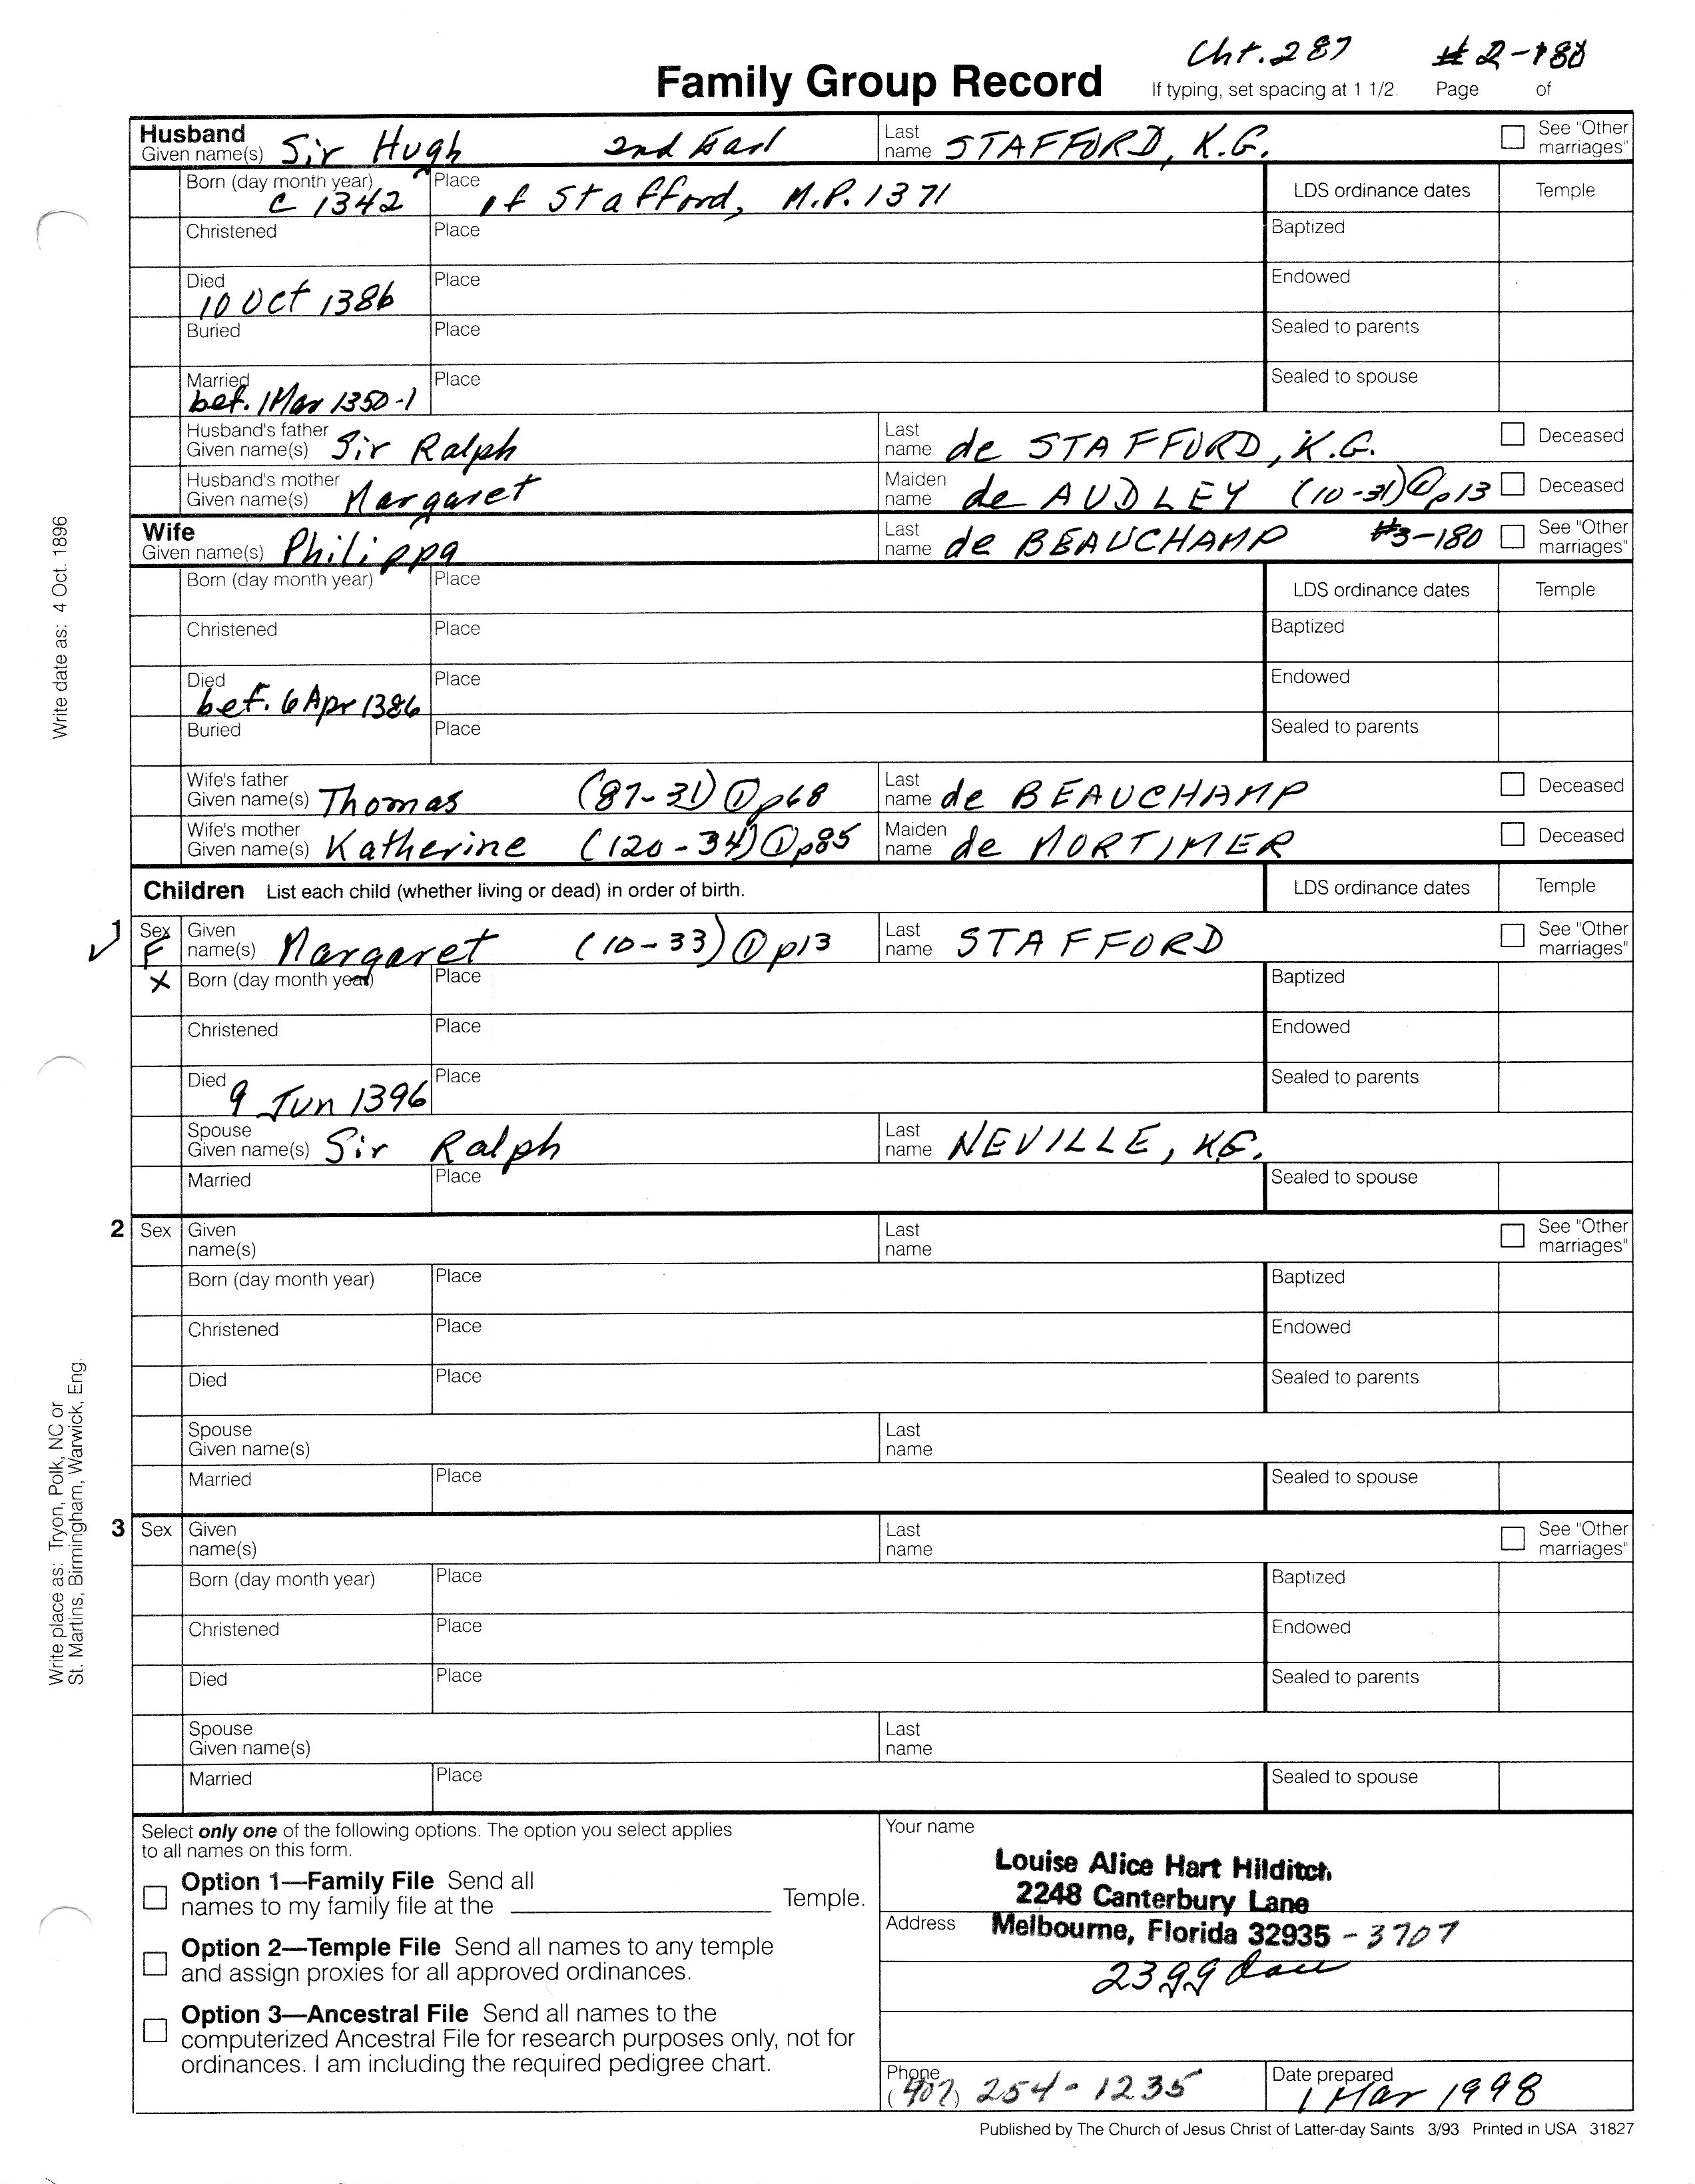 Cht. 287 #2-180
Family Group Record If typing, set spacing at 1 1/2. Page of
Husband
Given name(s) Sir Hugh 2nd Earl Last name STAFFORD, K.G. See "Other marriages"
Born (day month year) c 1342 Place of Stafford, M.P. 1371 LDS ordinance dates Temple
Christened Place Baptized
Died 10 Oct 1386 Place Endowed
Buried Place Sealed to parents
Married bef. 1 Mar 1350-1 Place Sealed to spouse
Husband's father Given name(s) Sir Ralph Last name de STAFFORD, K.G. Deceased
Husband's mother Given name(s) Margaret Maiden name de AUDLEY (10-31) ① p13 Deceased
Wife
Given name(s) Philippa Last name de BEAUCHAMP #3-180 See "Other marriages"
Born (day month year) Place LDS ordinance dates Temple
Christened Place Baptized
Died bef. 6 Apr 1386 Place Endowed
Buried Place Sealed to parents
Wife's father Given name(s) Thomas (87-31) ① p68 Last name de BEAUCHAMP Deceased
Wife's mother Given name(s) Katherine (120-34) ① p85 Maiden name de MORTIMER Deceased
Children List each child (whether living or dead) in order of birth. LDS ordinance dates Temple
1 Sex F Given name(s) Margaret (10-33) ① p13 Last name STAFFORD See "Other marriages"
X Born (day month year) Place Baptized
Christened Place Endowed
Died 9 Jun 1396 Place Sealed to parents
Spouse Given name(s) Sir Ralph Last name NEVILLE, KG.
Married Place Sealed to spouse
2 Sex Given name(s) Last name See "Other marriages"
Born (day month year) Place Baptized
Christened Place Endowed
Died Place Sealed to parents
Spouse Given name(s) Last name
Married Place Sealed to spouse
3 Sex Given name(s) Last name See "Other marriages"
Born (day month year) Place Baptized
Christened Place Endowed
Died Place Sealed to parents
Spouse Given name(s) Last name
Married Place Sealed to spouse
Select only one of the following options. The option you select applies
to all names on this form.
Option 1—Family File Send all
names to my family file at the Temple.
Option 2—Temple File Send all names to any temple
and assign proxies for all approved ordinances.
Option 3—Ancestral File Send all names to the
computerized Ancestral File for research purposes only, not for
ordinances. I am including the required pedigree chart.
Your name
Louise Alice Hart Hilditch
2248 Canterbury Lane
Address Melbourne, Florida 32935 - 3707
Phone (407) 254-1235 Date prepared 1 Mar 1998
Published by The Church of Jesus Christ of Latter-day Saints 3/93 Printed in USA 31827
Write date as: 4 Oct. 1896
Write place as: Tryon, Polk, NC or
St. Martins, Birmingham, Warwick, Eng.